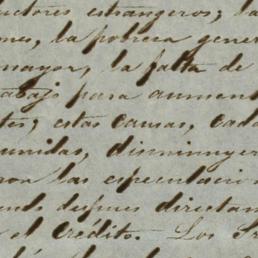 uctores estrangeros; la
nes, la pobreza gener
mayor, la falta de
abajo para aument
tes; estas causas, cada
unidas, disminuye
ron las especulacio
endo despues directam
el crédito. Los